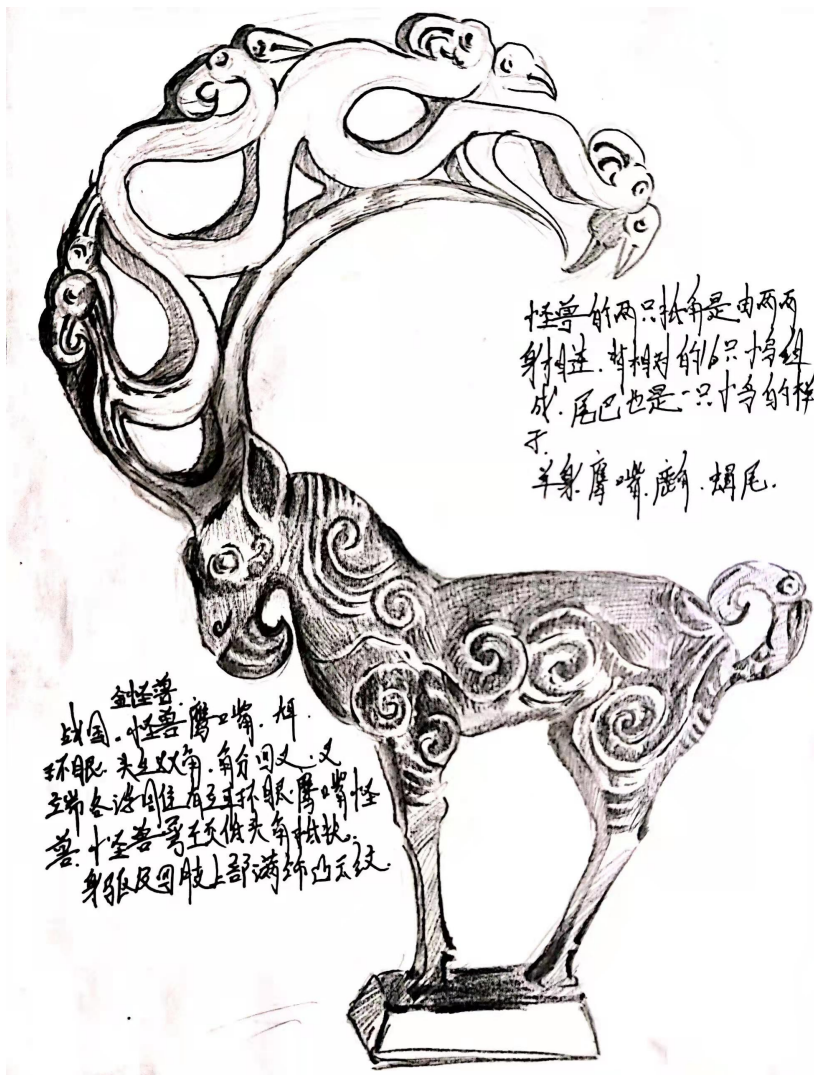 怪兽的两只抵角是由两两
身相连.背相对的16只小鸟组
成.尾巴也是一只小鸟的样
子.
羊身.鹰嘴.鹿角.蝎尾.
金怪兽
战国.怪兽鹰嘴.
环眼.头生双角.角分四叉.叉
端各 环眼.鹰嘴怪
兽.怪兽 低头角抵状.
身躯及四肢上部满饰凸云纹.